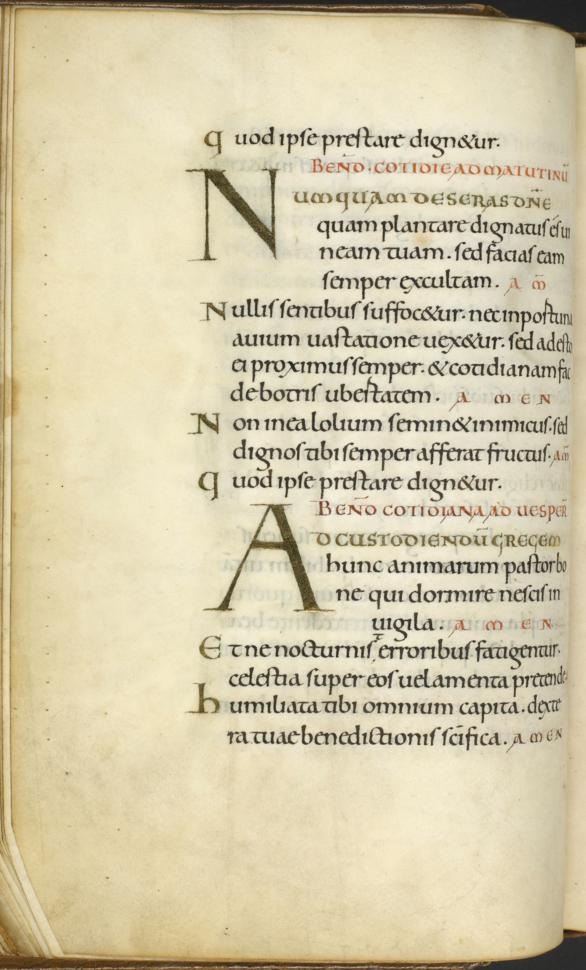 quod ipse prestare dign&ur.
BEÑD. COTIDIE AD MATUTINŪ
NUMQUAM DESERAS DÑE
quam plantare dignatus es ui
neam tuam. sed facias eam
semper excultam. A M̄
Nullis sentibus suffoc&ur. nec inportuna
auium uastatione uex&ur. sed adesto
ei proximus semper. & cotidianam fac
de botris ubestatem. AMEN
Non in ea lolium semin& inimicus. sed
dignos tibi semper afferat fructus. AM̄
quod ipse prestare dign&ur.
BEÑD COTIDIANA AD UESPER̄
AD CUSTODIENDŪ GREGEM
hunc animarum pastor bo
ne qui dormire nescis in
uigila. AMEN
Et ne nocturnis erroribus fatigentur.
celestia super eos uelamenta pretende.
humiliata tibi omnium capita. dexte
ra tuae benedictionis scifica. AMEN